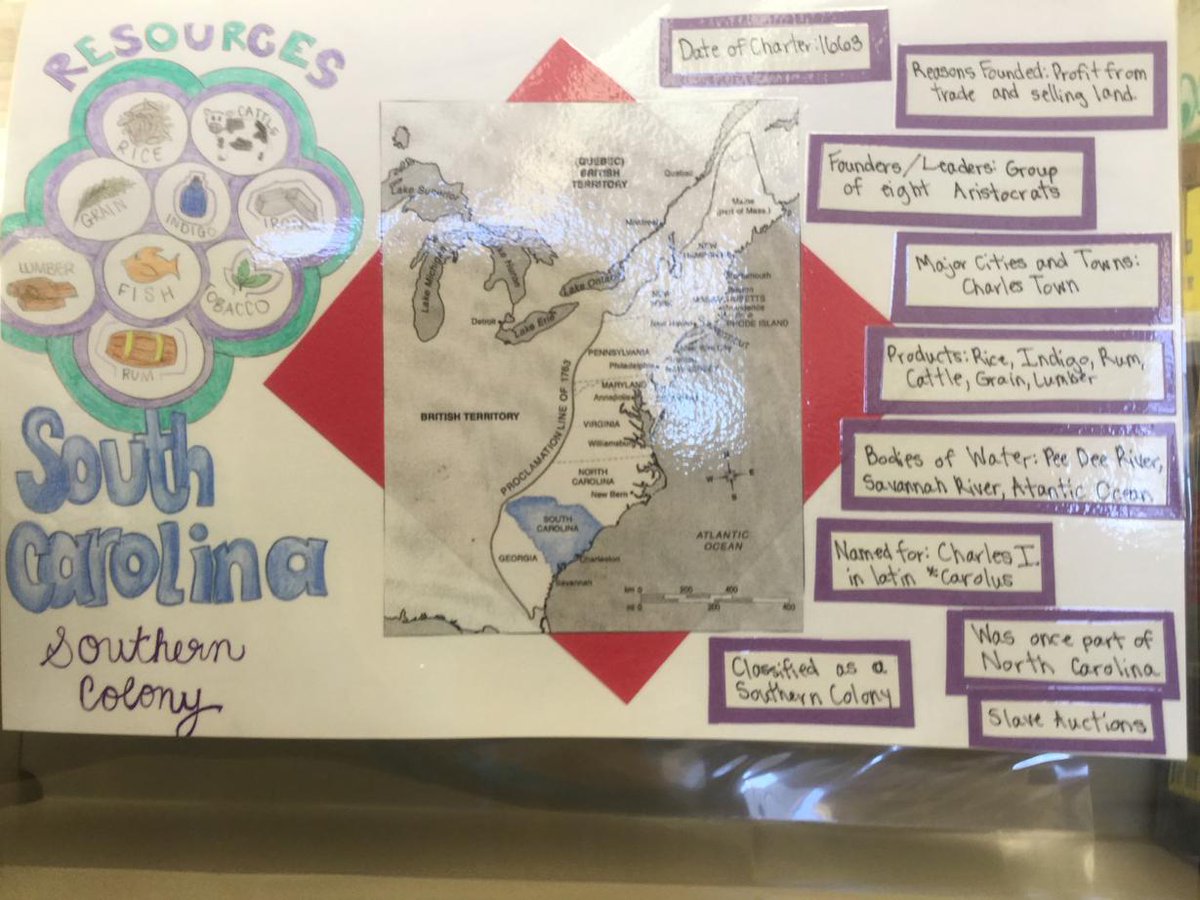 RESOURCES
RICE
CATTLE
GRAIN
INDIGO
IRON
LUMBER
FISH
TOBACCO
RUM
South
Carolina
Southern
Colony
(QUEBEC)
BRITISH
TERRITORY
Quebec
Lake Superior
Maine
(part of Mass.)
Montreal
Lake Huron
Lake Michi
Lake Ontario
NEW
Portsmouth
Detroit
Lake Erie
RHODE ISLAND
PENNSYLVANIA
Philadelphia
MARYLAND
Annapolis
BRITISH TERRITORY
PROCLAMATION LINE OF 1763
VIRGINIA
Williamsburg
NORTH
CAROLINA
New Bern
W E
S
SOUTH
CAROLINA
ATLANTIC
OCEAN
GEORGIA
Charleston
Savannah
km 0 200 400
mi 0 200 400
Date of Charter: 1663
Reasons Founded: Profit from
trade and selling land.
Founders/Leaders: Group
of eight Aristocrats
Major Cities and Towns:
Charles Town
Products: Rice, Indigo, Rum,
Cattle, Grain, Lumber
Bodies of Water: Pee Dee River,
Savannah River, Atantic Ocean
Named for: Charles I
in latin *Carolus
Was once part of
North Carolina
Classified as a
Southern Colony
Slave Auctions